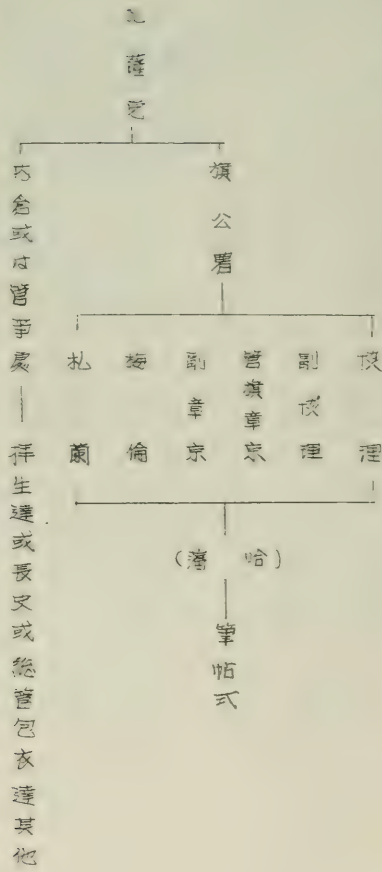 札薩克
旗公署
協理
副協理
管旗章京
副章京
梅倫
札蘭
(哈藩)
筆帖式
内倉或は管事處
拝生達或長史或総管包衣達其他